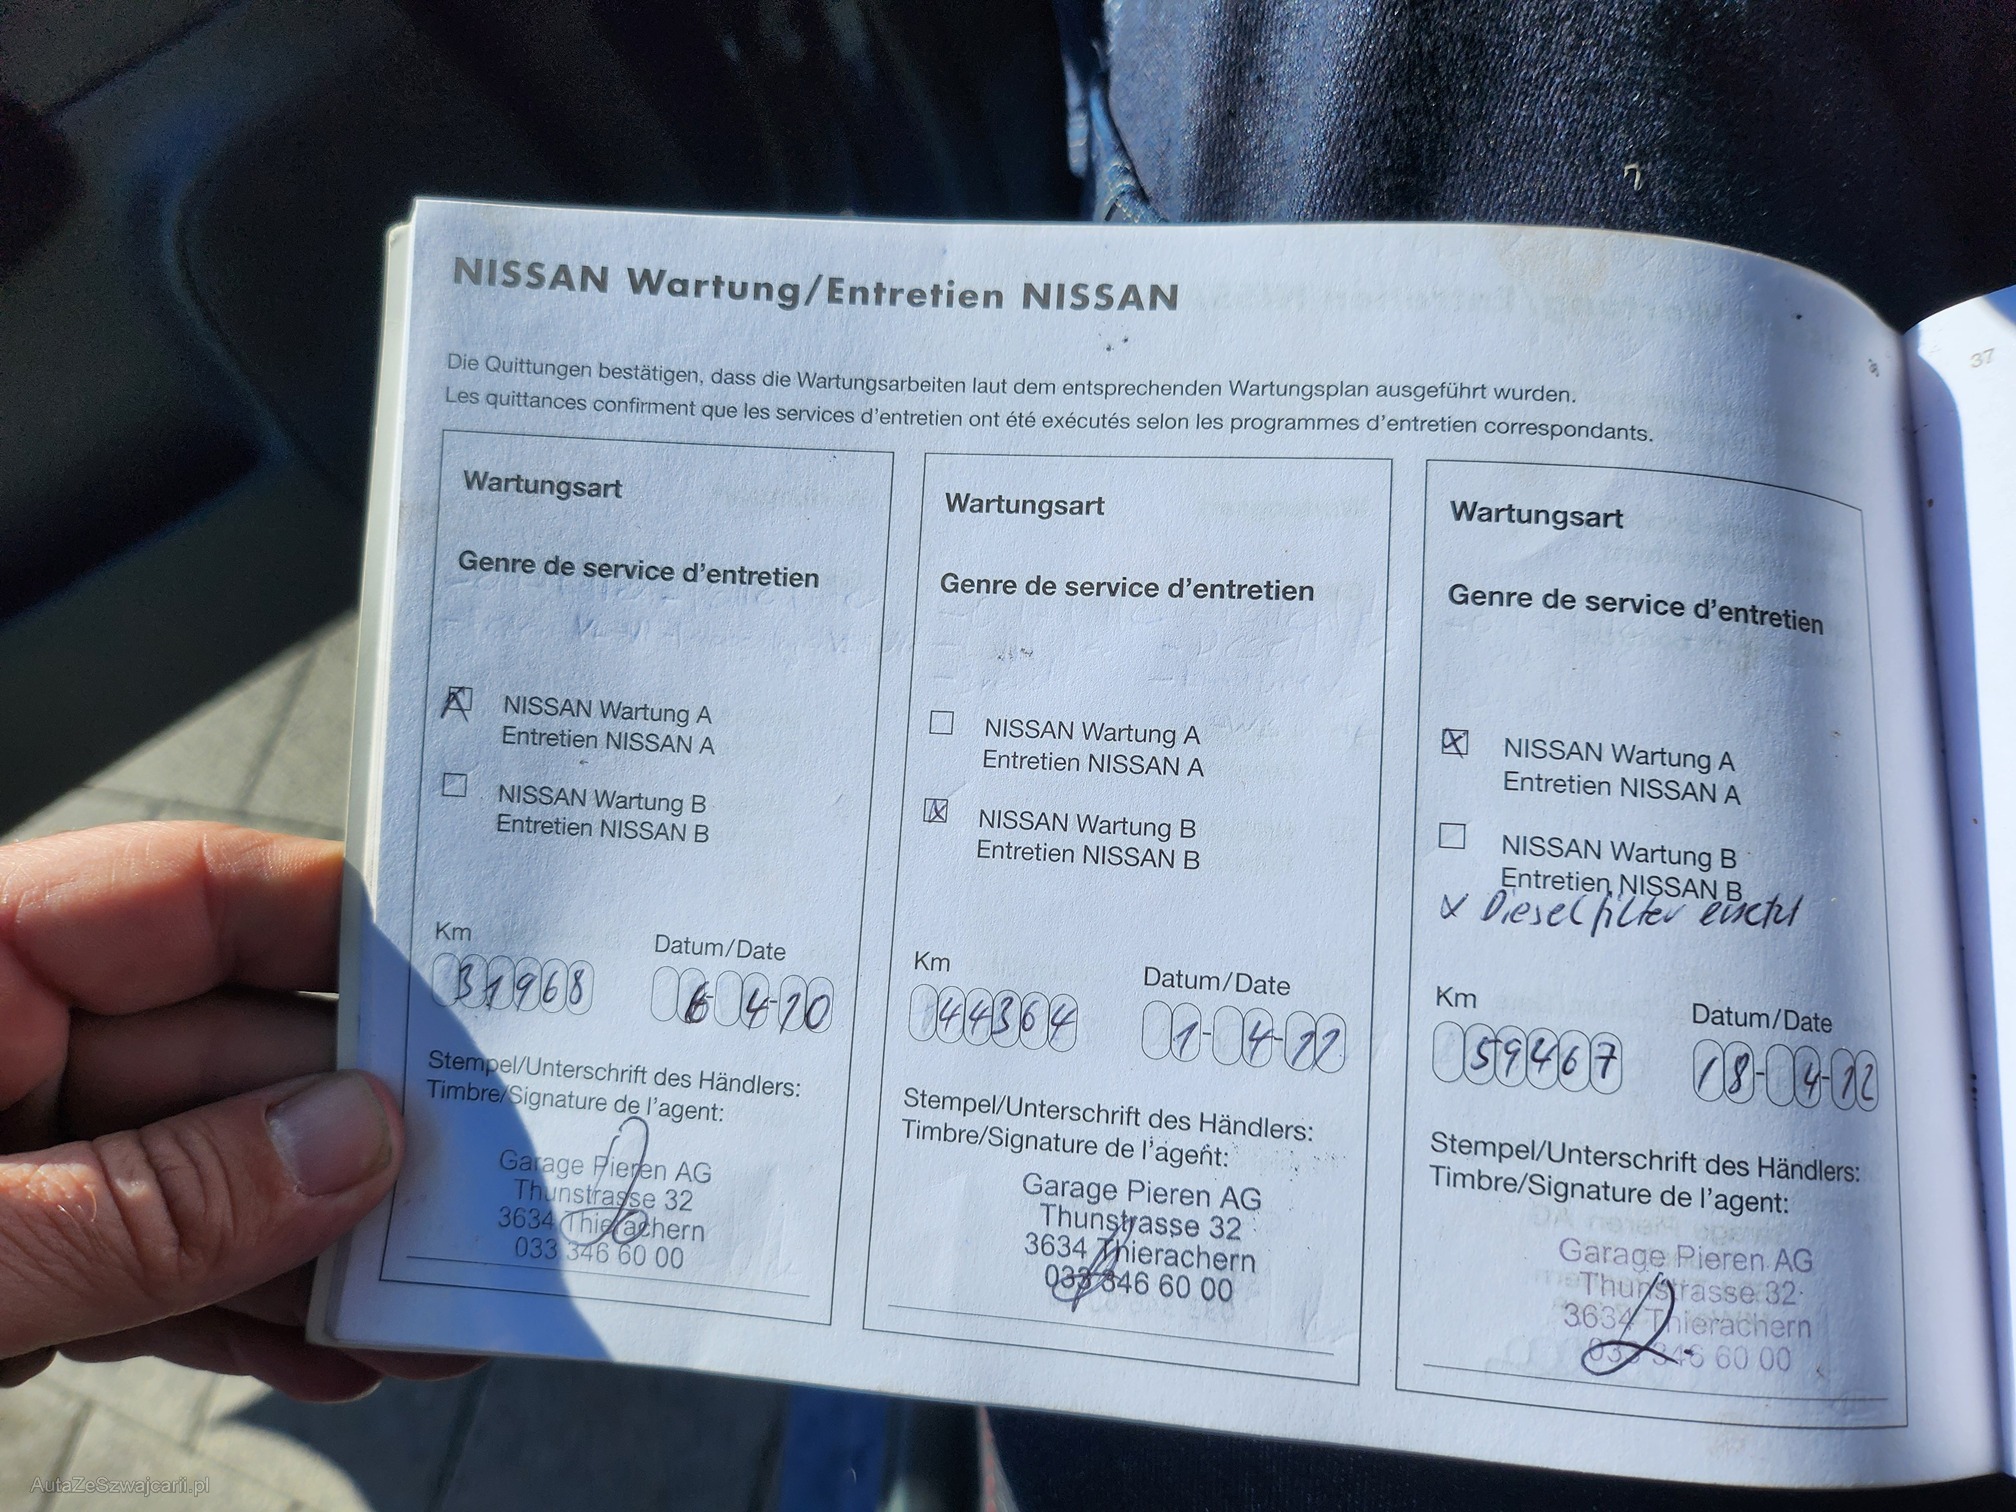 NISSAN Wartung/Entretien NISSAN
37
Die Quittungen bestätigen, dass die Wartungsarbeiten laut dem entsprechenden Wartungsplan ausgeführt wurden.
Les quittances confirment que les services d'entretien ont été exécutés selon les programmes d'entretien correspondants.
Wartungsart
Genre de service d'entretien
NISSAN Wartung A
Entretien NISSAN A
NISSAN Wartung B
Entretien NISSAN B
Km
Datum/Date
31968
6 4-10
Stempel/Unterschrift des Händlers:
Timbre/Signature de l'agent:
Garage Pieren AG
Thunstrasse 32
3634 Thierachern
033 346 60 00
Wartungsart
Genre de service d'entretien
NISSAN Wartung A
Entretien NISSAN A
NISSAN Wartung B
Entretien NISSAN B
Km
Datum/Date
44364
1-4-11
Stempel/Unterschrift des Händlers:
Timbre/Signature de l'agent:
Garage Pieren AG
Thunstrasse 32
3634 Thierachern
033 346 60 00
Wartungsart
Genre de service d'entretien
NISSAN Wartung A
Entretien NISSAN A
NISSAN Wartung B
Entretien NISSAN B
x Dieselfilter
Km
Datum/Date
59467
18-4-12
Stempel/Unterschrift des Händlers:
Timbre/Signature de l'agent:
Garage Pieren AG
Thunstrasse 32
3634 Thierachern
033 346 60 00
AutaZeSzwajcarii.pl